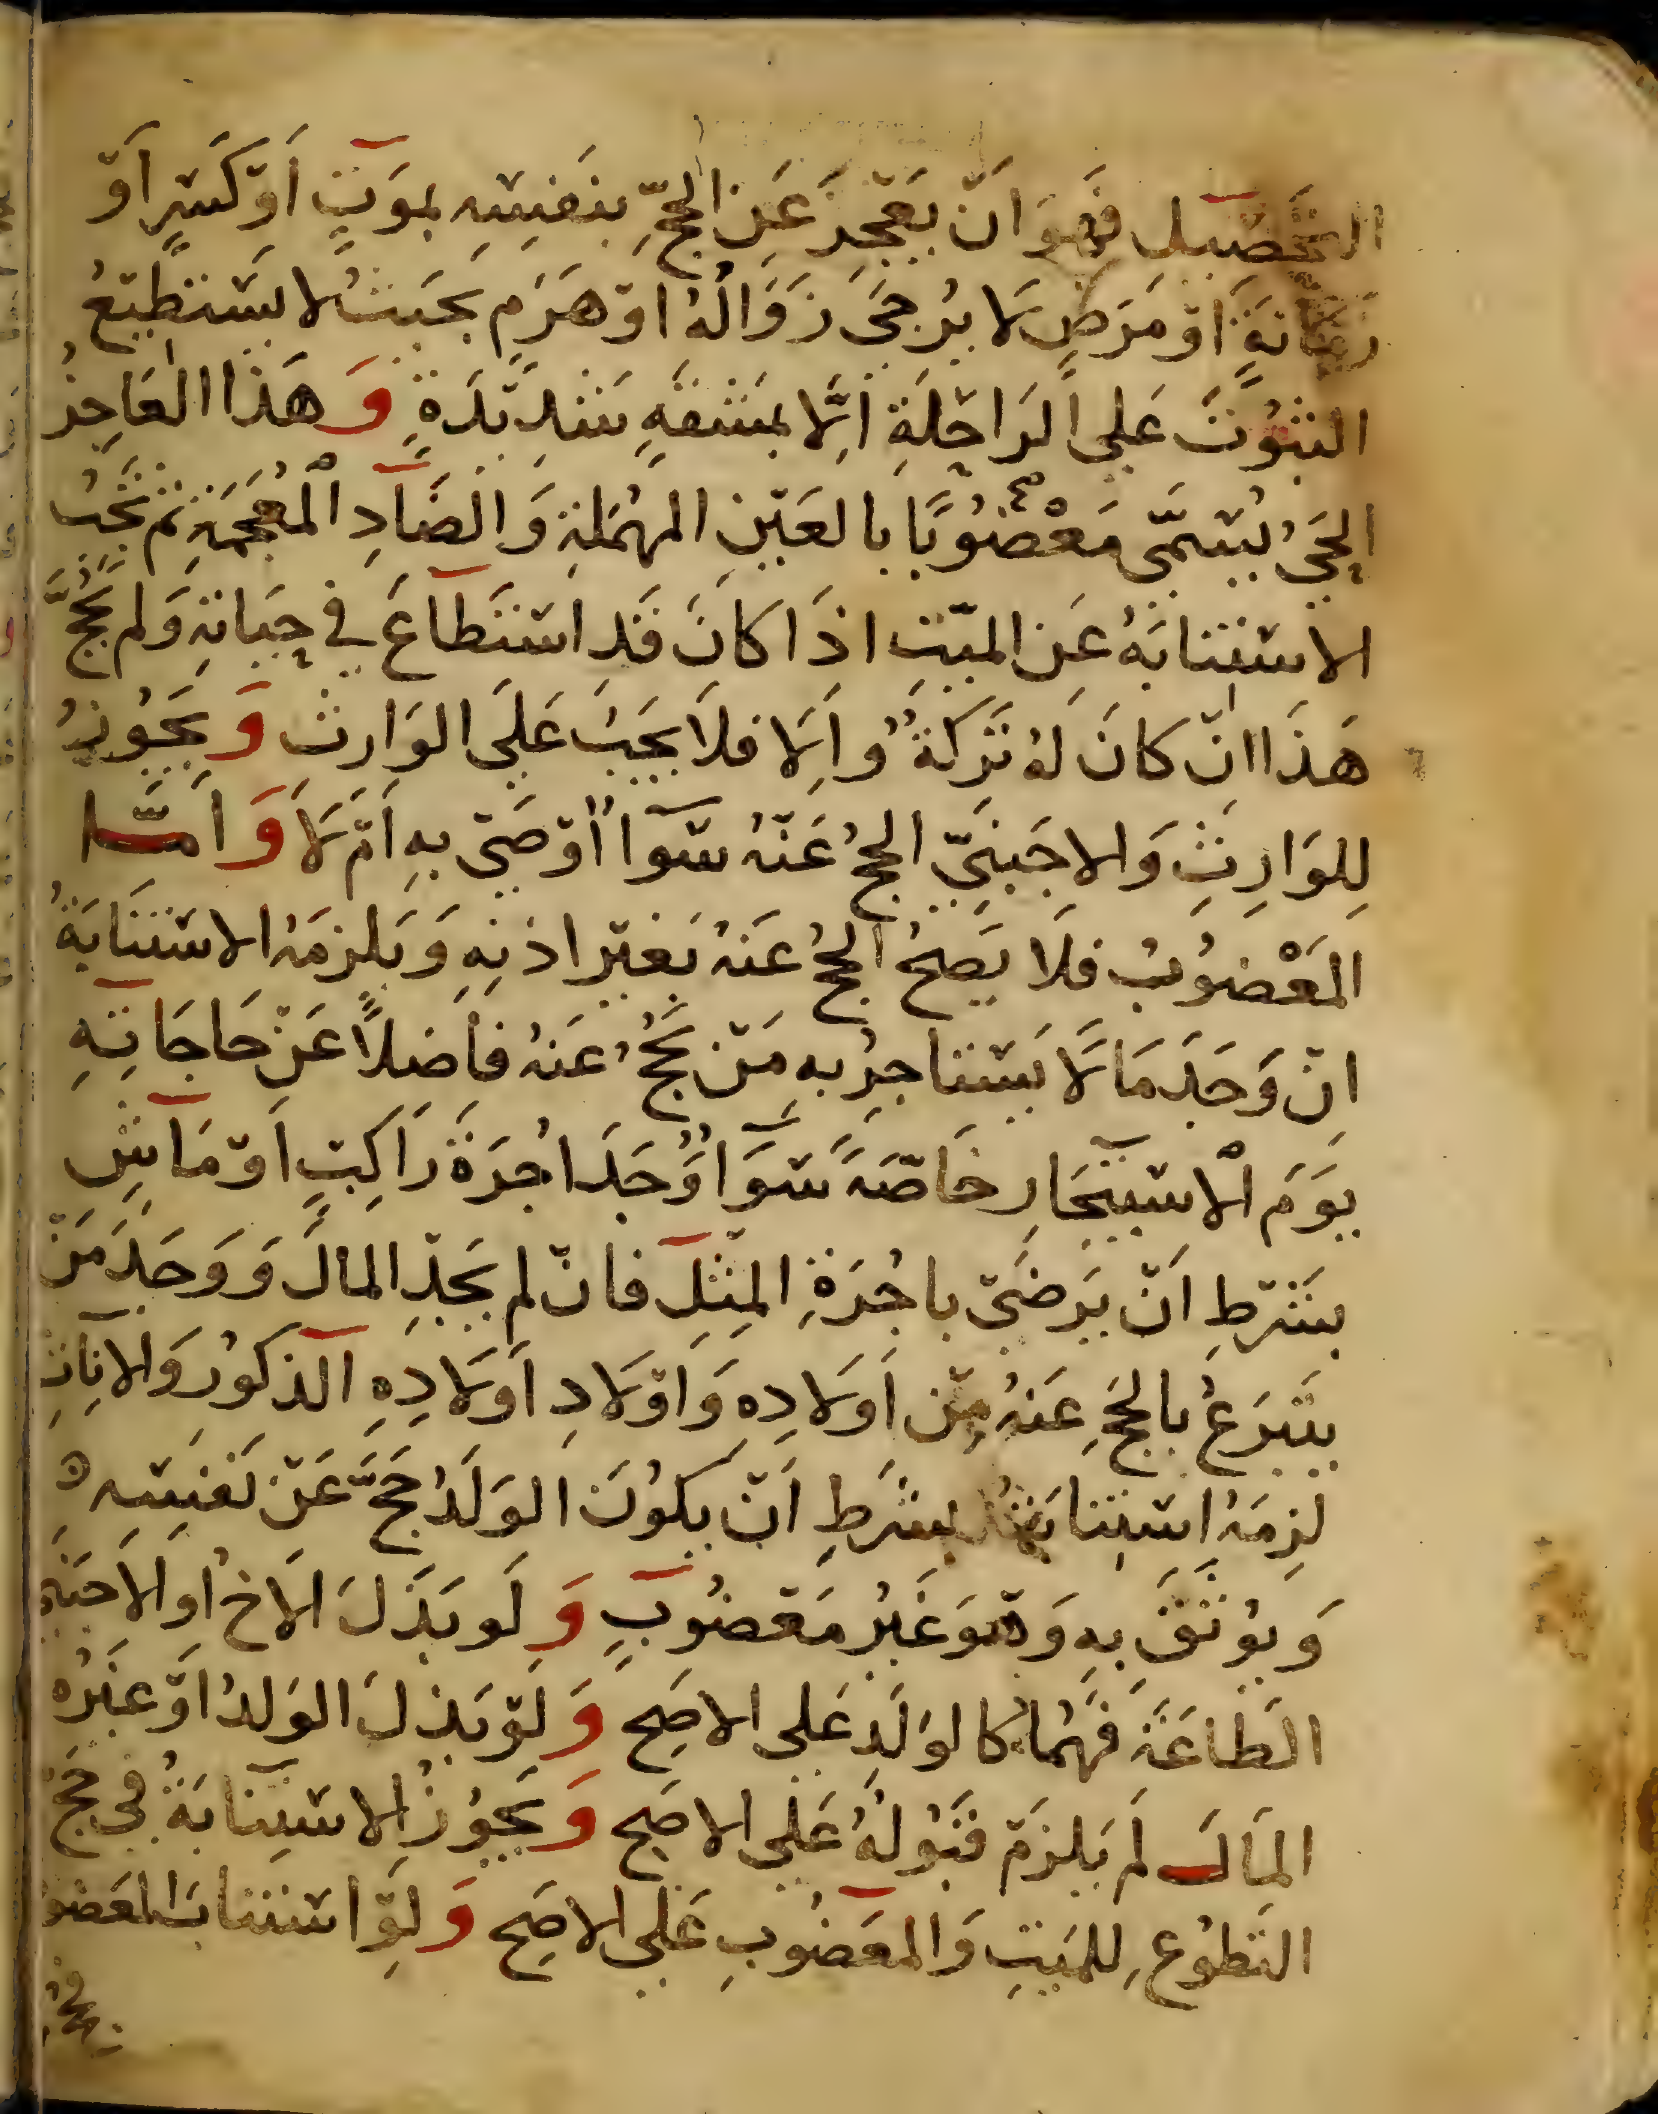 التحصيل فهو ان يعجز عن الحج بنفسه بموت او كسر او
زمانة او مرض لا يرجى زواله او هرم بحيث لا يستطيع
الثبوت على الراحلة الا بمشقة شديدة وهذا العاجز
الحي يسمى معضوبا بالعين المهملة والضاد المعجمة ثم تجب
الاستنابة عن الميت اذا كان قد استطاع في حياته ولم يحج
هذا ان كان له تركة والا فلا يجب على الوارث ويجوز
للوارث والاجنبي الحج عنه سوآ اوصى به ام لا واما
المعضوب فلا يصح الحج عنه بغير اذنه ويلزمه الاستنابة
ان وجد مالا يستاجر به من يحج عنه فاضلا عن حاجاته
يوم الاستيجار خاصة سوآ وجد اجرة راكب او ماش
بشرط ان يرضى باجرة المثل فان لم يجد المال ووجد من
يتبرع بالحج عنه من اولاده واولاد اولاده الذكور والاناث
لزمه استنابته بشرط ان يكون الولد حج عن نفسه
ويوثق به وهو غير معضوب ولو بذل الاخ او الاجنبي
الطاعة فهما كالولد على الاصح ولو بذل الولد او غيره
المال لم يلزم قبوله على الاصح ويجوز الاستنابة في حج
التطوع للميت والمعضوب على الاصح ولو استناب المعضو